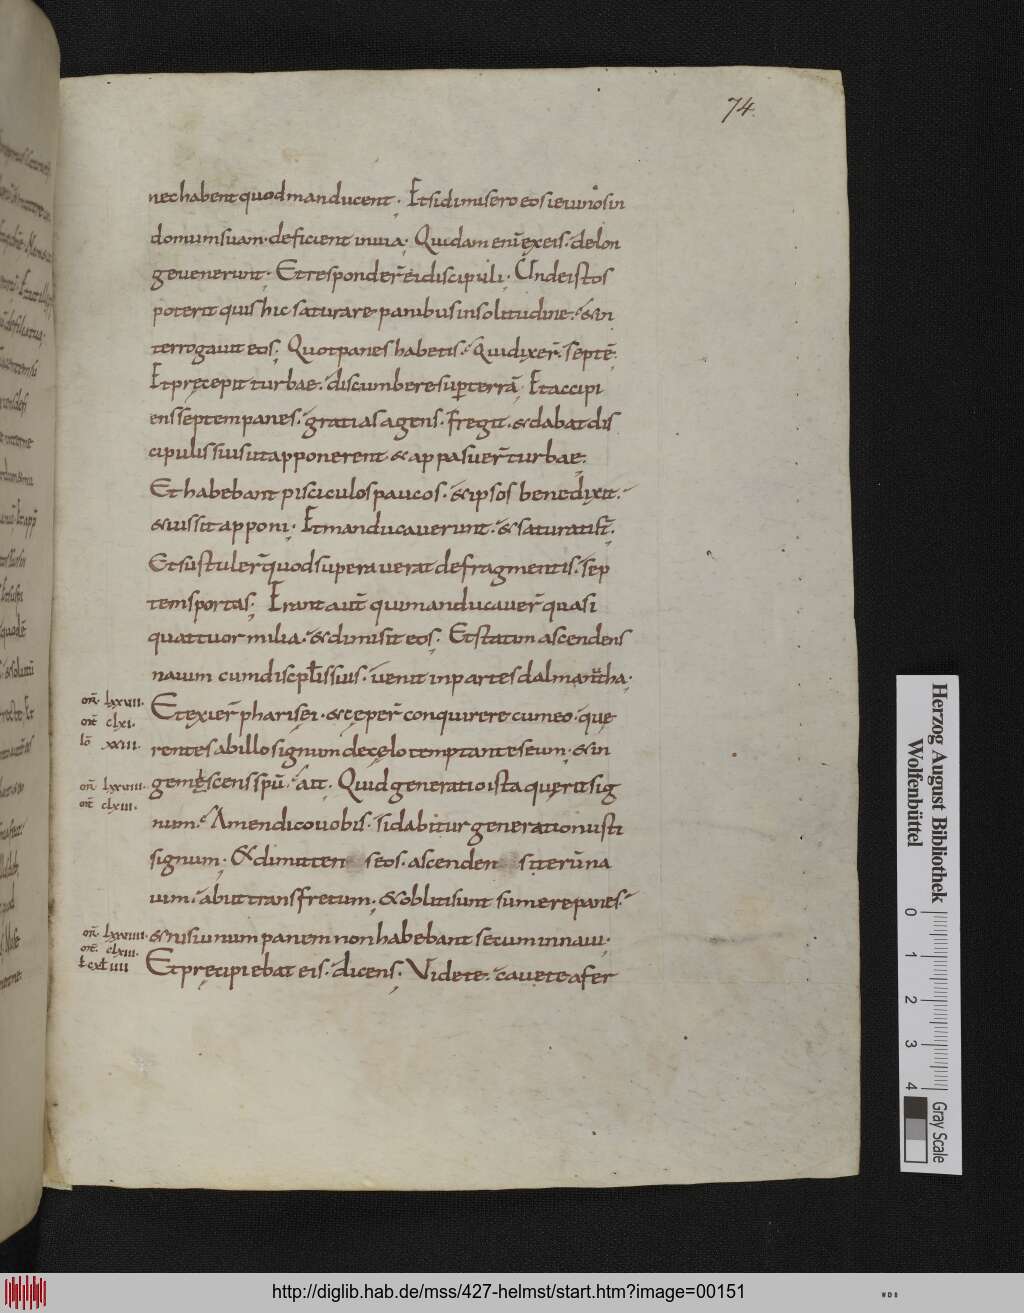 74.
nec habent quod manducent. Et si dimisero eos ieiunos in
domum suam. deficient in via; Quidam enī ex eis. de lon
ge venerunt; Et responder̄ ei discipuli; Unde istos
poterit quis hic saturare panibus in solitudine. & in
terrogavit eos; Quot panes habetis. Qui dixer̄. septē;
Et precepit turbae. discumbere sup terrā; Et accipi
ens septem panes. gratias agens. fregit. & dabat dis
cipulis suis ut apponerent & apposuer̄ turbae;
Et habebant pisciculos paucos. & ipsos benedixit.
& iussit apponi; Et manducaverunt. & saturati s̄;
Et sustuler̄ quod superaverat de fragmentis. sep
tem sportas; Erant aut̄ qui manducaver̄ quasi
quattuor milia. & dimisit eos; Et statim ascendens
navim cum discipłis suis. venit in partes dalmanutha;
om̄. lxxvii. Et exier̄ pharisei. & ceper̄ conquirere cum eo. que
om̄ clxi.
lō xxiii. rentes ab illo signum de celo temptantes eum; & in
om̄ lxxviii. gemescens spū. ait. Quid generatio ista querit sig
om̄ clxii. num. Amen dico vobis. si dabitur generationi isti
signum; & dimitten s eos. ascenden s iterū na
vim. abiit trans fretum; & obliti sunt sumere panes.
om̄. lxxviiii. & nisi unum panem non habebant secum in navi.
om̄. clxiii.
Et precipiebat eis. dicens; Videte. cavete a fer
Herzog August Bibliothek
Wolfenbüttel
0 1 2 3 4
Gray Scale
http://diglib.hab.de/mss/427-helmst/start.htm?image=00151